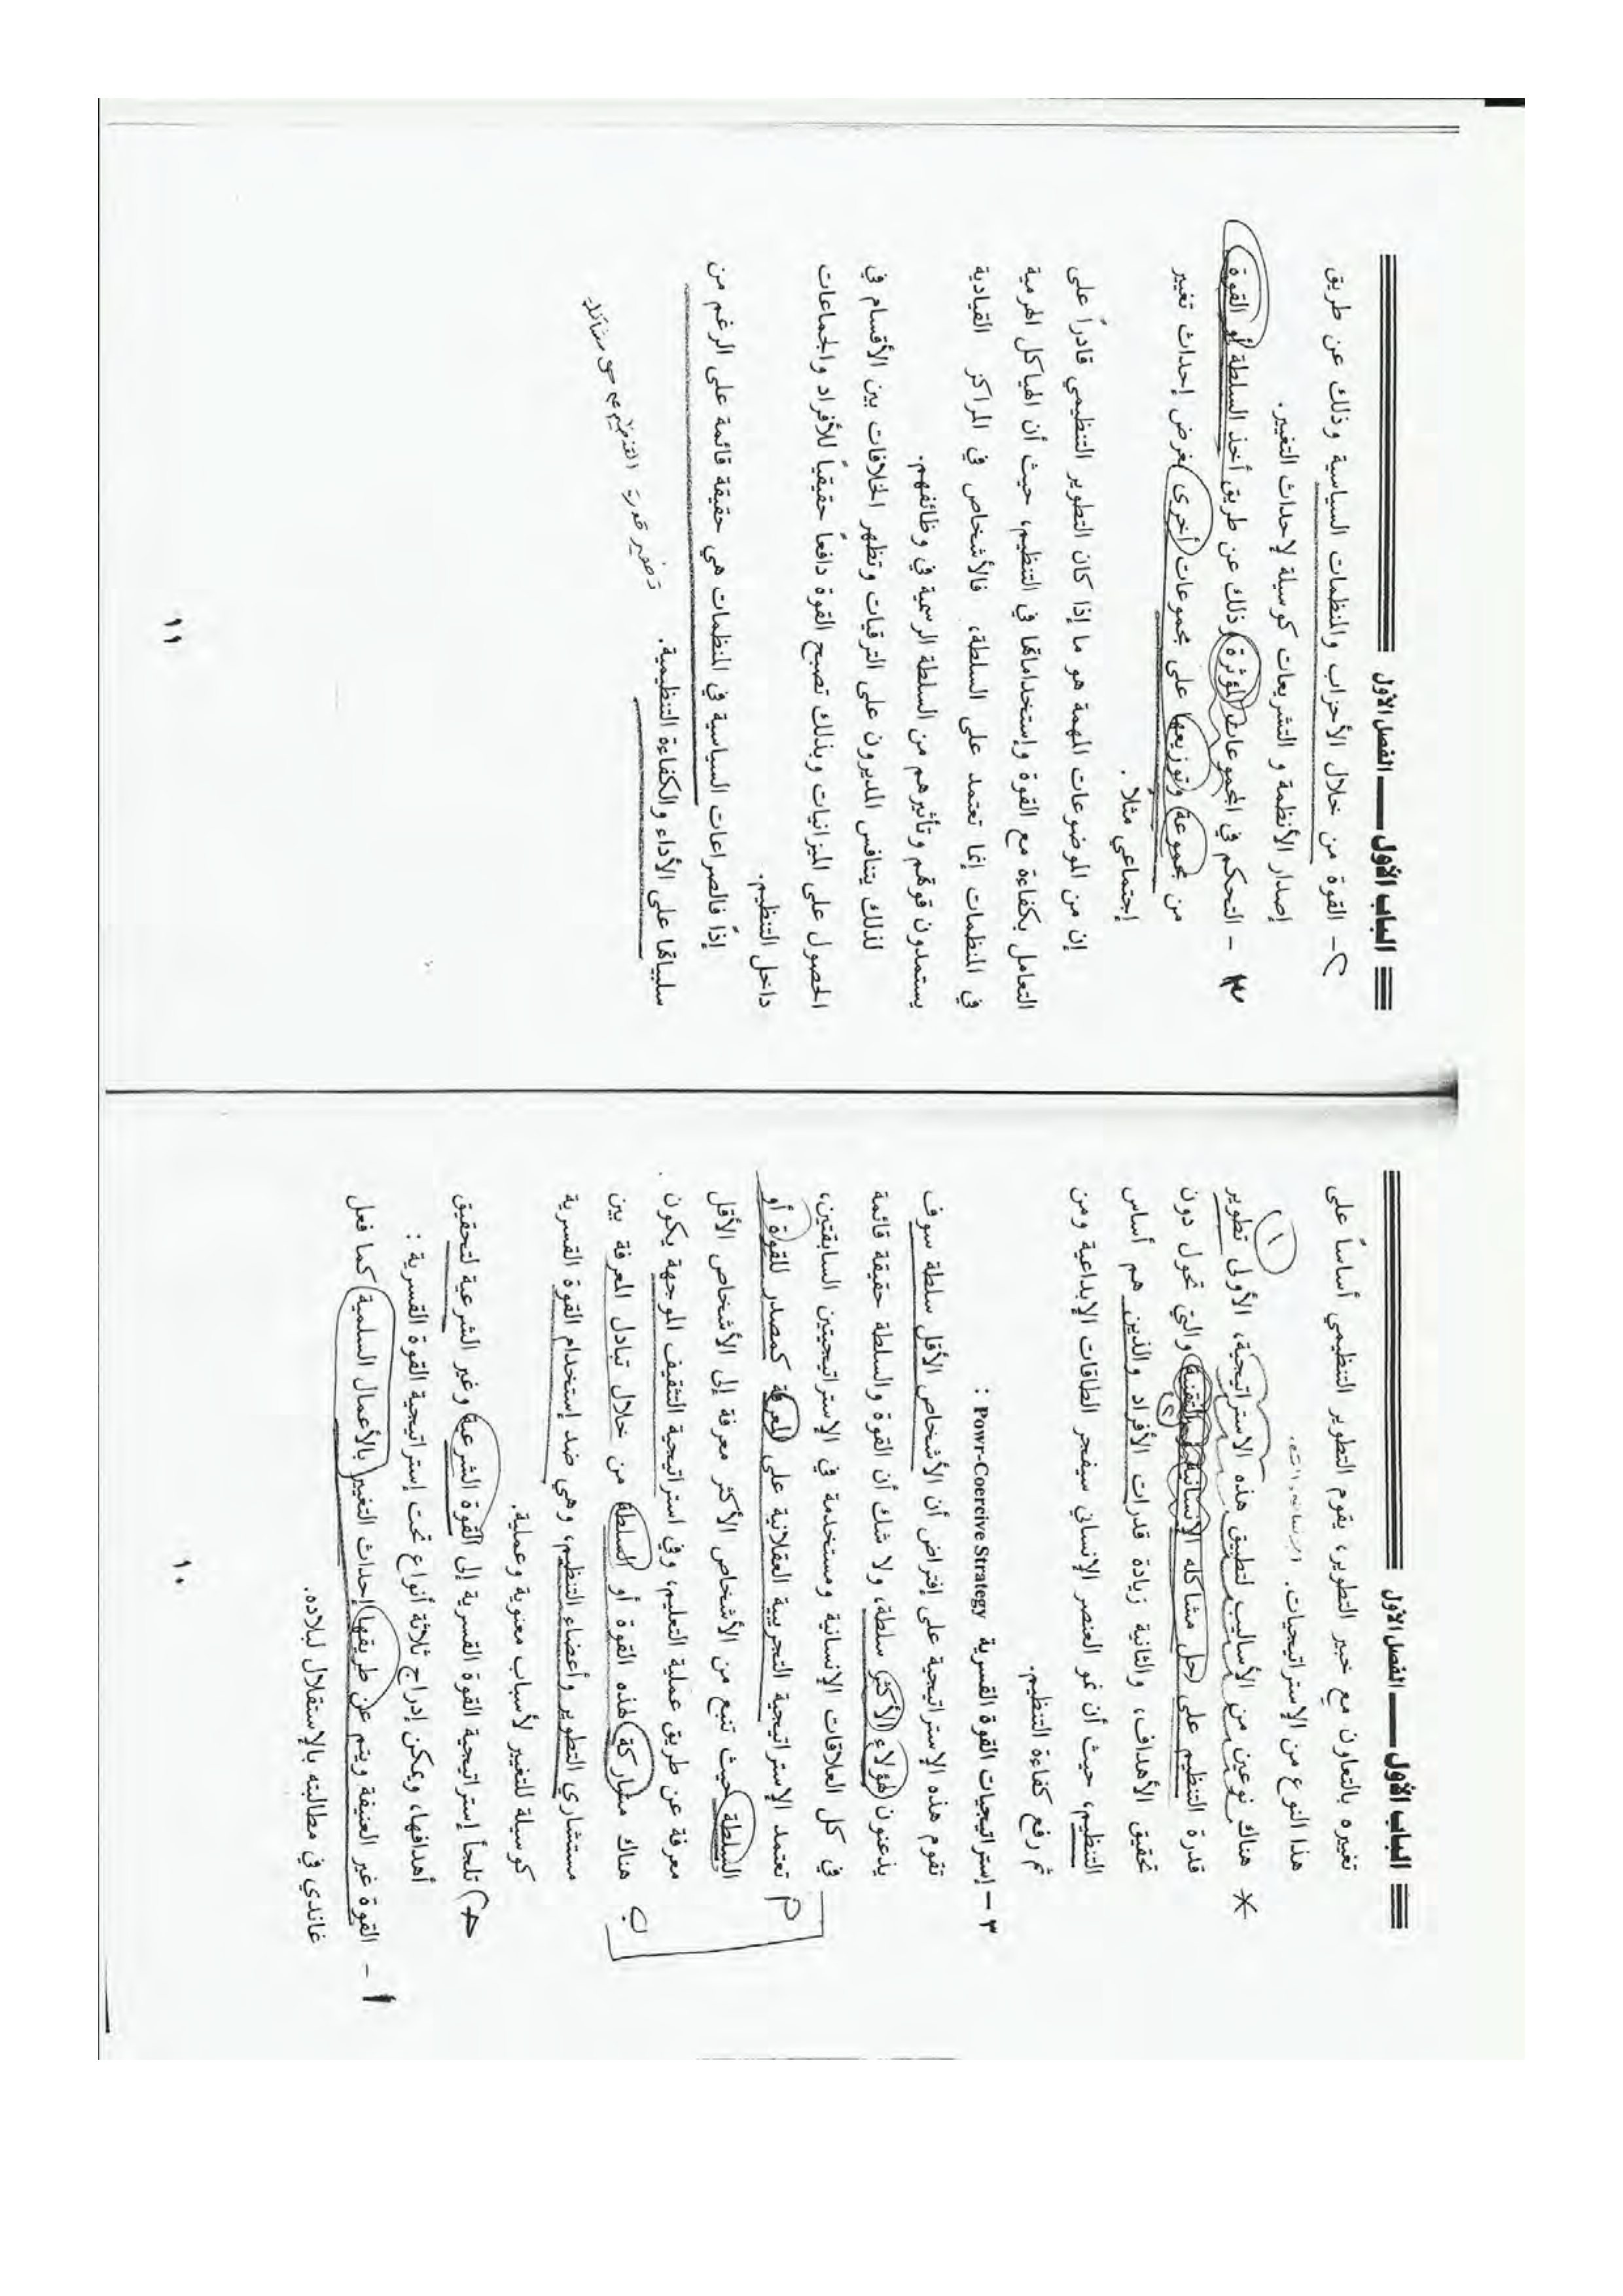 الباب الأول ـــ الفصل الأول
تغييره بالتعاون مع خبير التطوير، يقوم التطوير التنظيمي أساساً على
هذا النوع من الإستراتيجيات.
* هناك نوعين من الأساليب لتطبيق هذه الاستراتيجية، الأولى تطوير
١
قدرة التنظيم على حل مشاكله الإنسانية والتقنية والتي تحول دون
٢
تحقيق الأهداف، والثانية زيادة قدرات الأفراد والذين هم أساس
التنظيم، حيث أن نمو العنصر الإنساني سيفجر الطاقات الإبداعية ومن
ثم رفع كفاءة التنظيم.
٣ – إستراتيجيات القوة القسرية Powr-Coercive Strategy :
تقوم هذه الإستراتيجية على إفتراض أن الأشخاص الأقل سلطة سوف
يذعنون لهؤلاء الأكثر سلطة، ولا شك أن القوة والسلطة حقيقة قائمة
في كل العلاقات الإنسانية ومستخدمة في الإستراتيجيتين السابقتين،
تعتمد الإستراتيجية التجريبية العقلانية على المعرفة كمصدر للقوة أو
السلطة حيث تنبع من الأشخاص الأكثر معرفة إلى الأشخاص الأقل
معرفة عن طريق عملية التعليم، وفي استراتيجية التثقيف الموجهة يكون
ب هناك مشاركة لهذه القوة أو السلطة من خلال تبادل المعرفة بين
مستشاري التطوير وأعضاء التنظيم، وهي ضد إستخدام القوة القسرية
كوسيلة للتغيير لأسباب معنوية وعملية.
تلجأ إستراتيجية القوة القسرية إلى القوة الشرعية وغير الشرعية لتحقيق
أهدافها، ويمكن إدراج ثلاثة أنواع تحت إستراتيجية القوة القسرية :
١ – القوة غير العنيفة ويتم عن طريقها إحداث التغيير بالأعمال السلمية كما فعل
غاندي في مطالبته بالإستقلال لبلاده.
١٠
الباب الأول ـــ الفصل الأول
٢ – القوة من خلال الأحزاب والمنظمات السياسية وذلك عن طريق
إصدار الأنظمة و التشريعات كوسيلة لإحداث التغيير.
٣ – التحكم في المجموعات المؤثرة وذلك عن طريق أخذ السلطة أو القوة
من مجموعة وتوزيعها على مجموعات أخرى بغرض إحداث تغيير
إجتماعي مثلاً .
إن من الموضوعات المهمة هو ما إذا كان التطوير التنظيمي قادراً على
التعامل بكفاءة مع القوة وإستخداماتها في التنظيم، حيث أن الهياكل الهرمية
في المنظمات إنما تعتمد على السلطة، فالأشخاص في المراكز القيادية
يستمدون قوتهم وتأثيرهم من السلطة الرسمية في وظائفهم.
لذلك يتنافس المديرون على الترقيات وتظهر الخلافات بين الأقسام في
الحصول على الميزانيات وبذلك تصبح القوة دافعاً حقيقياً للأفراد والجماعات
داخل التنظيم.
إذاً فالصراعات السياسية في المنظمات هي حقيقة قائمة على الرغم من
سلبياتها على الأداء والكفاءة التنظيمية.
١١